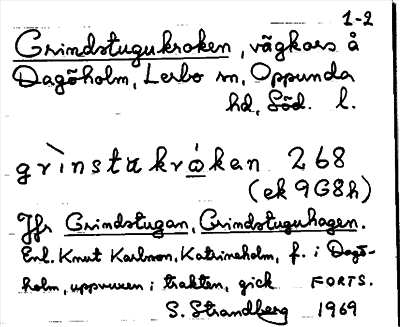 1-2
Grindstugukroken, vägkors å
Dagöholm, Lerbo sn, Oppunda
hd, Söd. l.
grìnstukrώkan 268
(ek 9G8h)
Jfr Grindstugan, Grindstuguhagen.
Enl. Knut Karlsson, Katrineholm, f. i Dagö-
holm, uppvuxen i trakten, gick FORTS.
S. Strandberg 1969